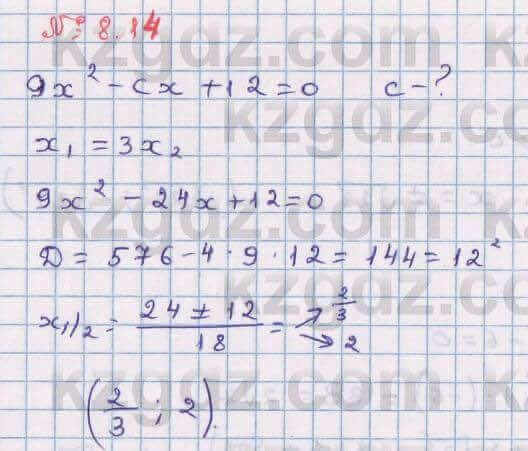 № 8.14
9x² - cx + 12 = 0 c - ?
x₁ = 3x₂
9x² - 24x + 12 = 0
D = 576 - 4 · 9 · 12 = 144 = 12²
x₁/₂ = (24 ± 12)/18 = ↗ 2/3 ↘ 2
(2/3 ; 2).
kzgdz.com